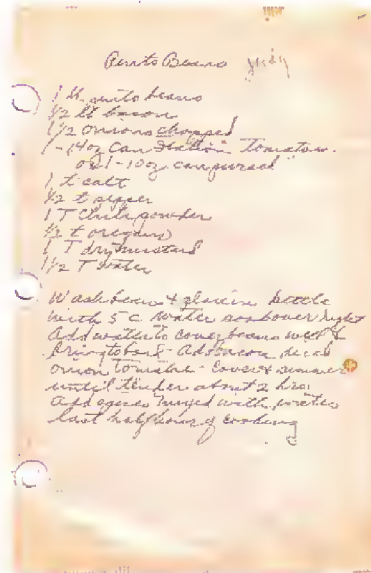 Pinto Beans Judy
1 lb. pinto beans
1/2 lb bacon
1 1/2 onions chopped
1 - 14 oz can Italian tomatoes
or 1 - 10 oz. can pureed
1 t salt
1/2 t pepper
1 T Chili powder
1/2 t oregano
1 T dry mustard
1 1/2 T water
Wash beans & place in kettle
with 5 c. water soak over night
Add water to cover beans well &
bring to boil - Add bacon
onion tomatoes - Cover & simmer
until tender about 2 hrs.
Add spices mixed with water
last half hour of cooking